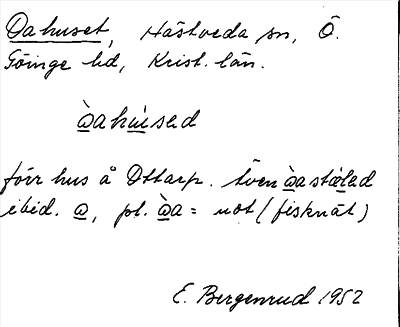 Oahuset, Hästveda sn, Ö.
Göinge hd, Krist. län.
ὼahu̠sed
förr hus å Ottarp. Även ὼastäled
ibid. ω, pl. ὼa = not (fisknät)
E. Bergenrud 1952